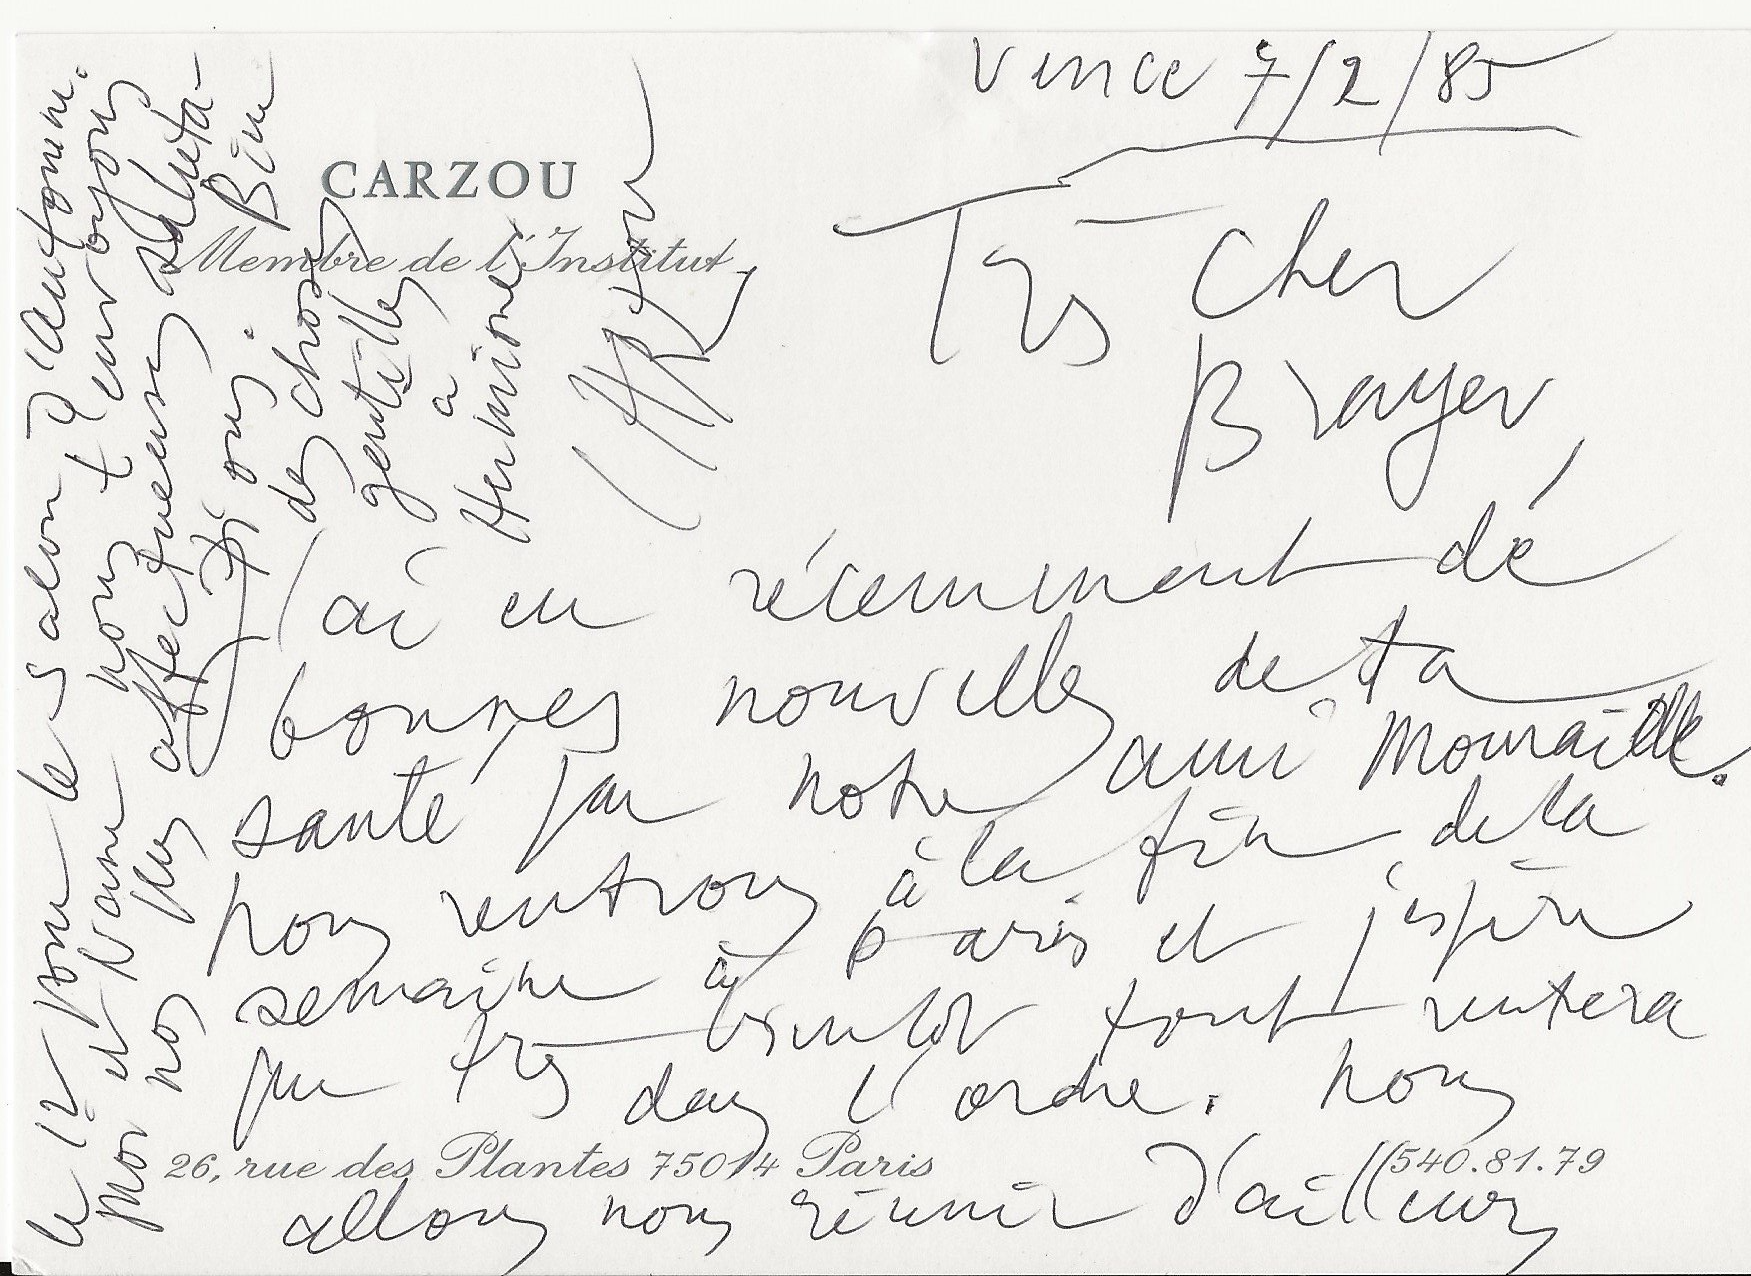 Vence 7/2/85
CARZOU
Membre de l'Institut
Très Cher
Brayer,
J'ai eu récemment dé
bonnes nouvelles de ta
santé par notre ami Mouraille.
nous rentrons à la fin de la
semaine à Paris et j'espère
que très bientôt tout rentrera
dans l'ordre. Nous
26, rue des Plantes 75014 Paris
540.81.79
allons nous réunir d'ailleurs
le 12 pour le salon d'Automne.
Moi et Nane nous t'envoyons
nos plus affectueuses saluta-
tions.
Bien
des choses
gentilles
à
Hermione